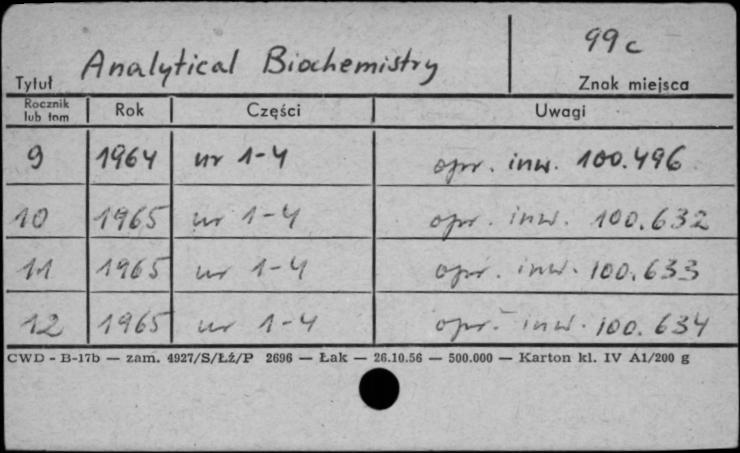 Tytuł Analytical Biochemistry 99c
Znak miejsca
Rocznik lub tom Rok Części Uwagi
9 1964 nr 1-4 opr. inw. 100.496
10 1965 nr 1-4 opr. inw. 100.632
11 1965 nr 1-4 opr. inw. 100.633
12 1965 nr 1-4 opr. inw. 100.634
CWD - B-17b — zam. 4927/S/Łź/P 2696 — Łak — 26.10.56 — 500.000 — Karton kl. IV A1/200 g